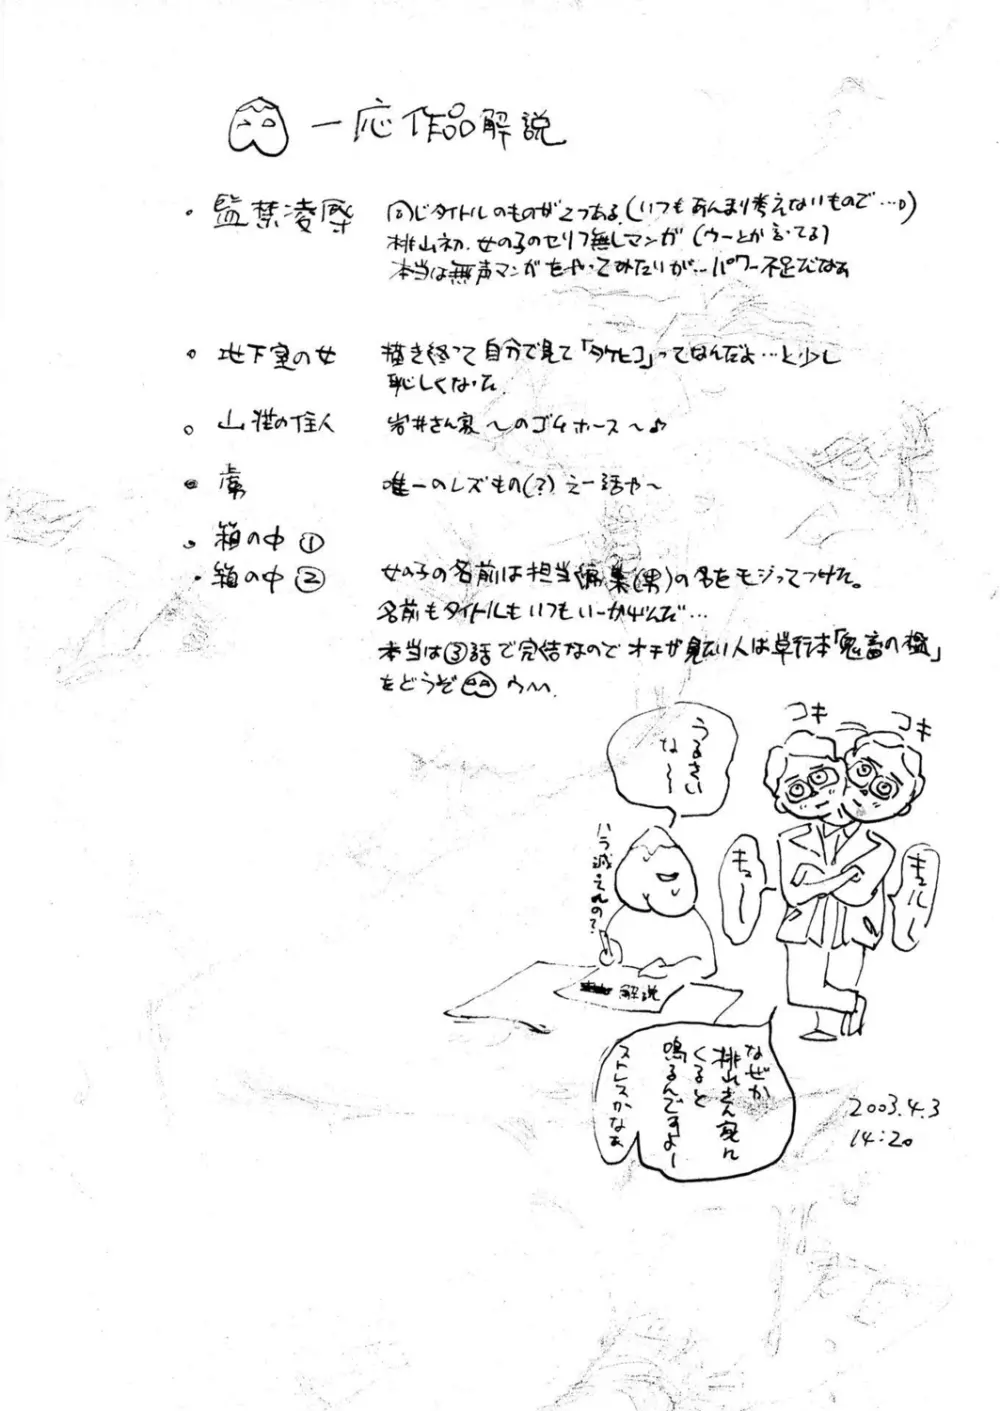 一応作品解説
・監禁凌辱
同じタイトルのものが2つある(いつもあんまり考えないもので…。)
桃山初、女の子のセリフ無しマンガ(ウーとか言ってる)
本当は無声マンガをやってみたいが…パワー不足だなぁ
・地下室の女
描き終って自分で見て「タケヒコ」ってなんだよ…と少し
恥しくなった
・山荘の住人
岩井さん家〜のゴムホース〜♪
・虜
唯一のレズもの(?)えー話や〜
・箱の中①
・箱の中②
女の子の名前は担当編集(男)の名をモジってつけた。
名前もタイトルもいつもいーかげんだ…
本当は③話で完結なのでオチが見たい人は単行本「鬼畜の檻」
をどうぞ ウ〜
コキ
コキ
うるさい
な〜〜
ハラ減ってんの?
キュ〜
キュル〜
解説
なぜか
桃山さん家に
くると
鳴るんですよー
ストレスかなぁ
2003.4.3
14:20